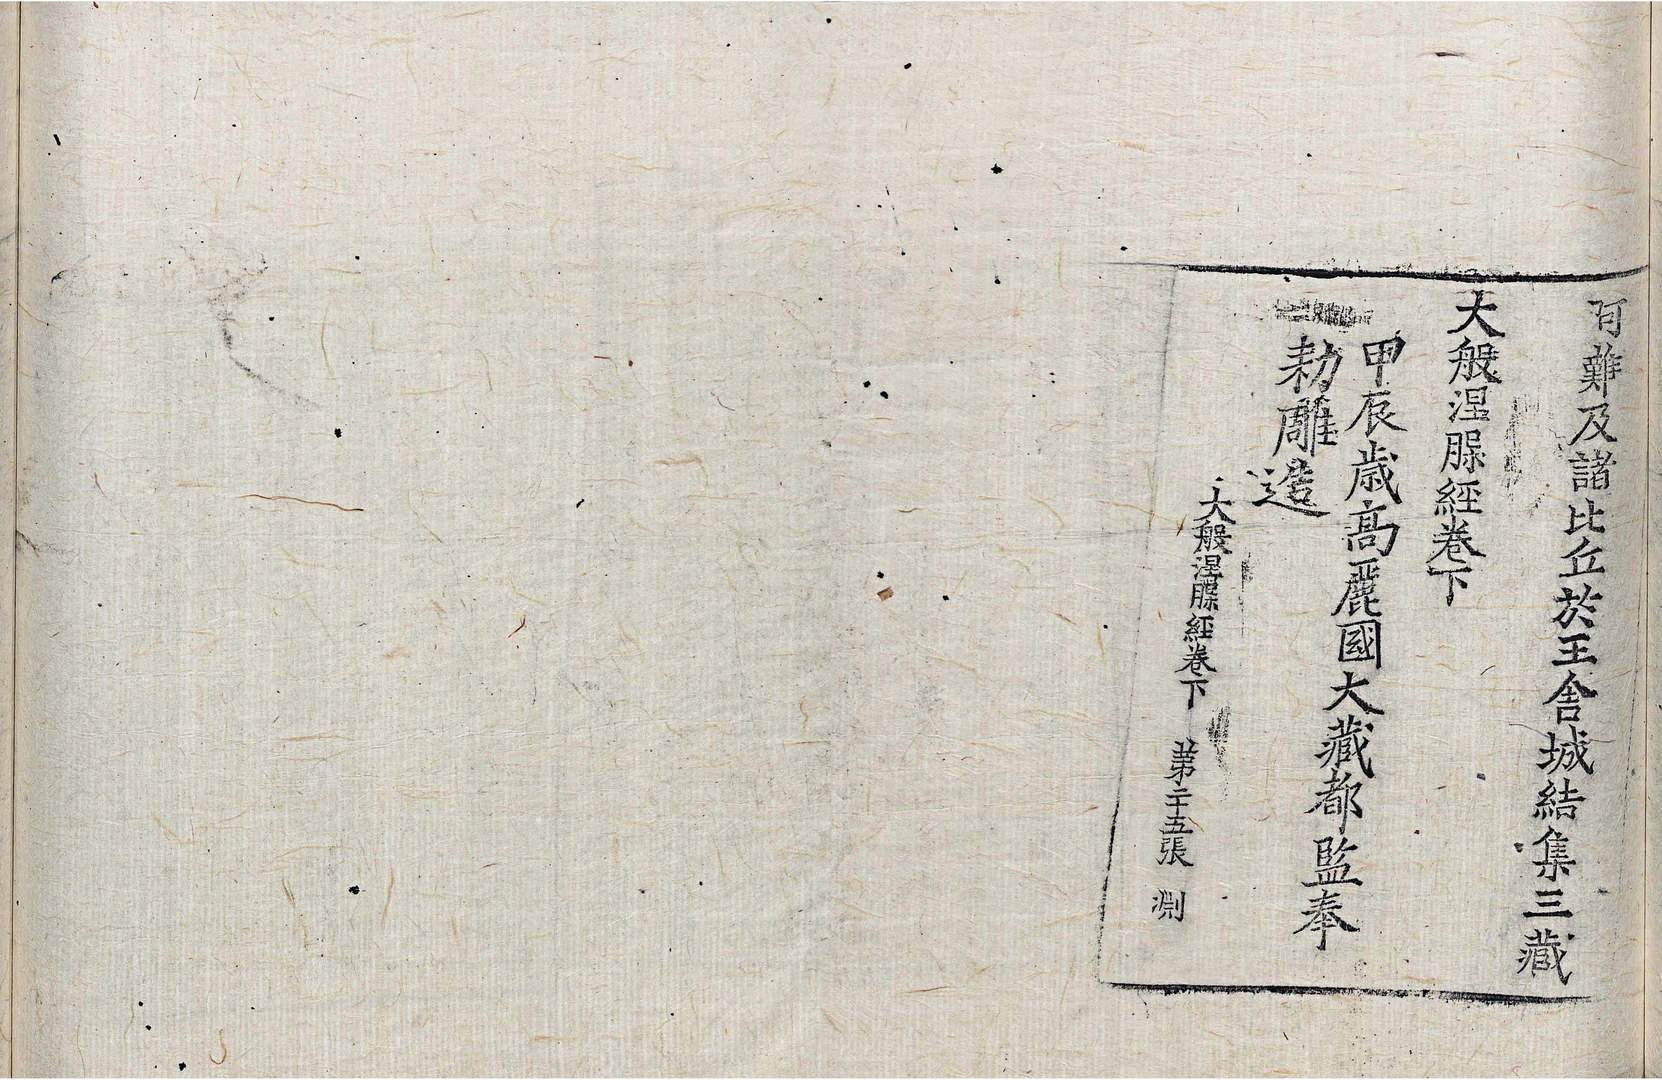 阿難及諸比丘於王舍城結集三藏
大般涅槃經卷下
甲辰歳高麗國大藏都監奉
勅雕造
大般涅槃經卷下 第二十五張 淵